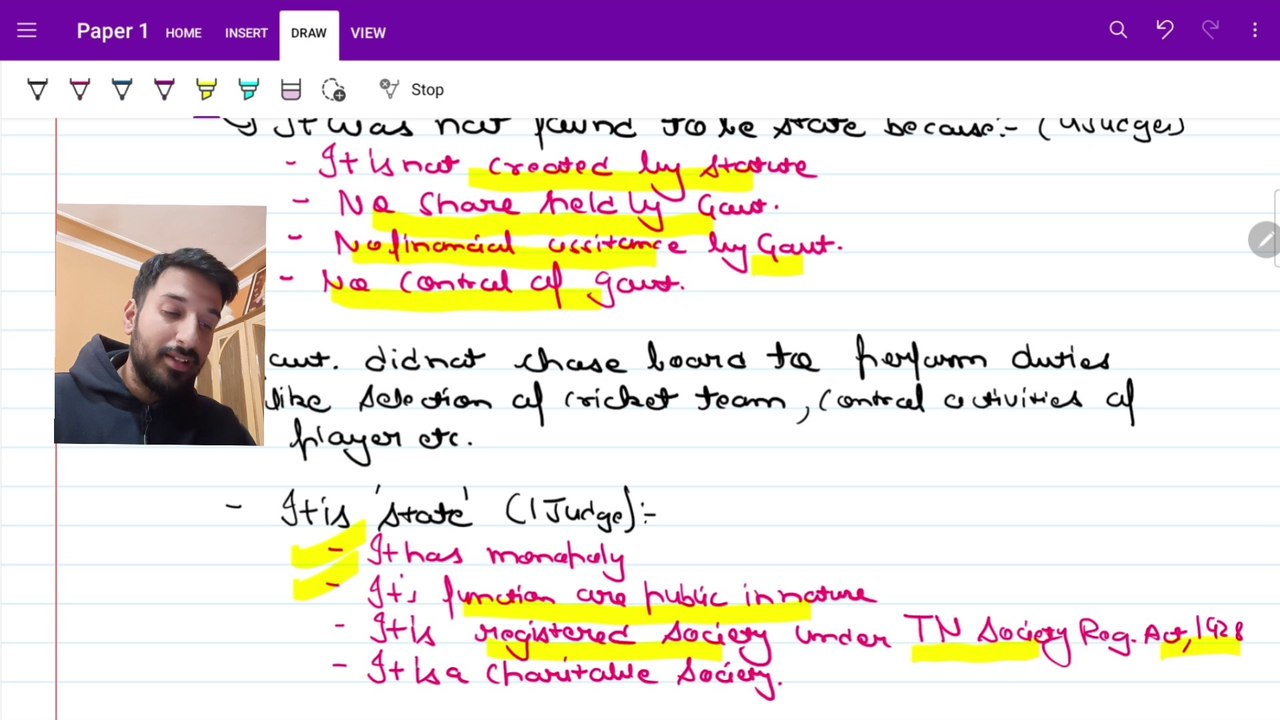 Paper 1 HOME INSERT DRAW VIEW
Stop
It was not found to be state because:- (4Judges)
- It is not created by statute
- No share held by Govt.
- No financial assitance by Govt.
- No control of govt.
ovt. did not chose board to perform duties
like selection of cricket team, control activities of
player etc.
- It is 'state' (1Judge):-
- It has monopoly
- It's function are public in nature
- It is registered society under TN Society Reg. Act, 1928
- It is a charitable society.